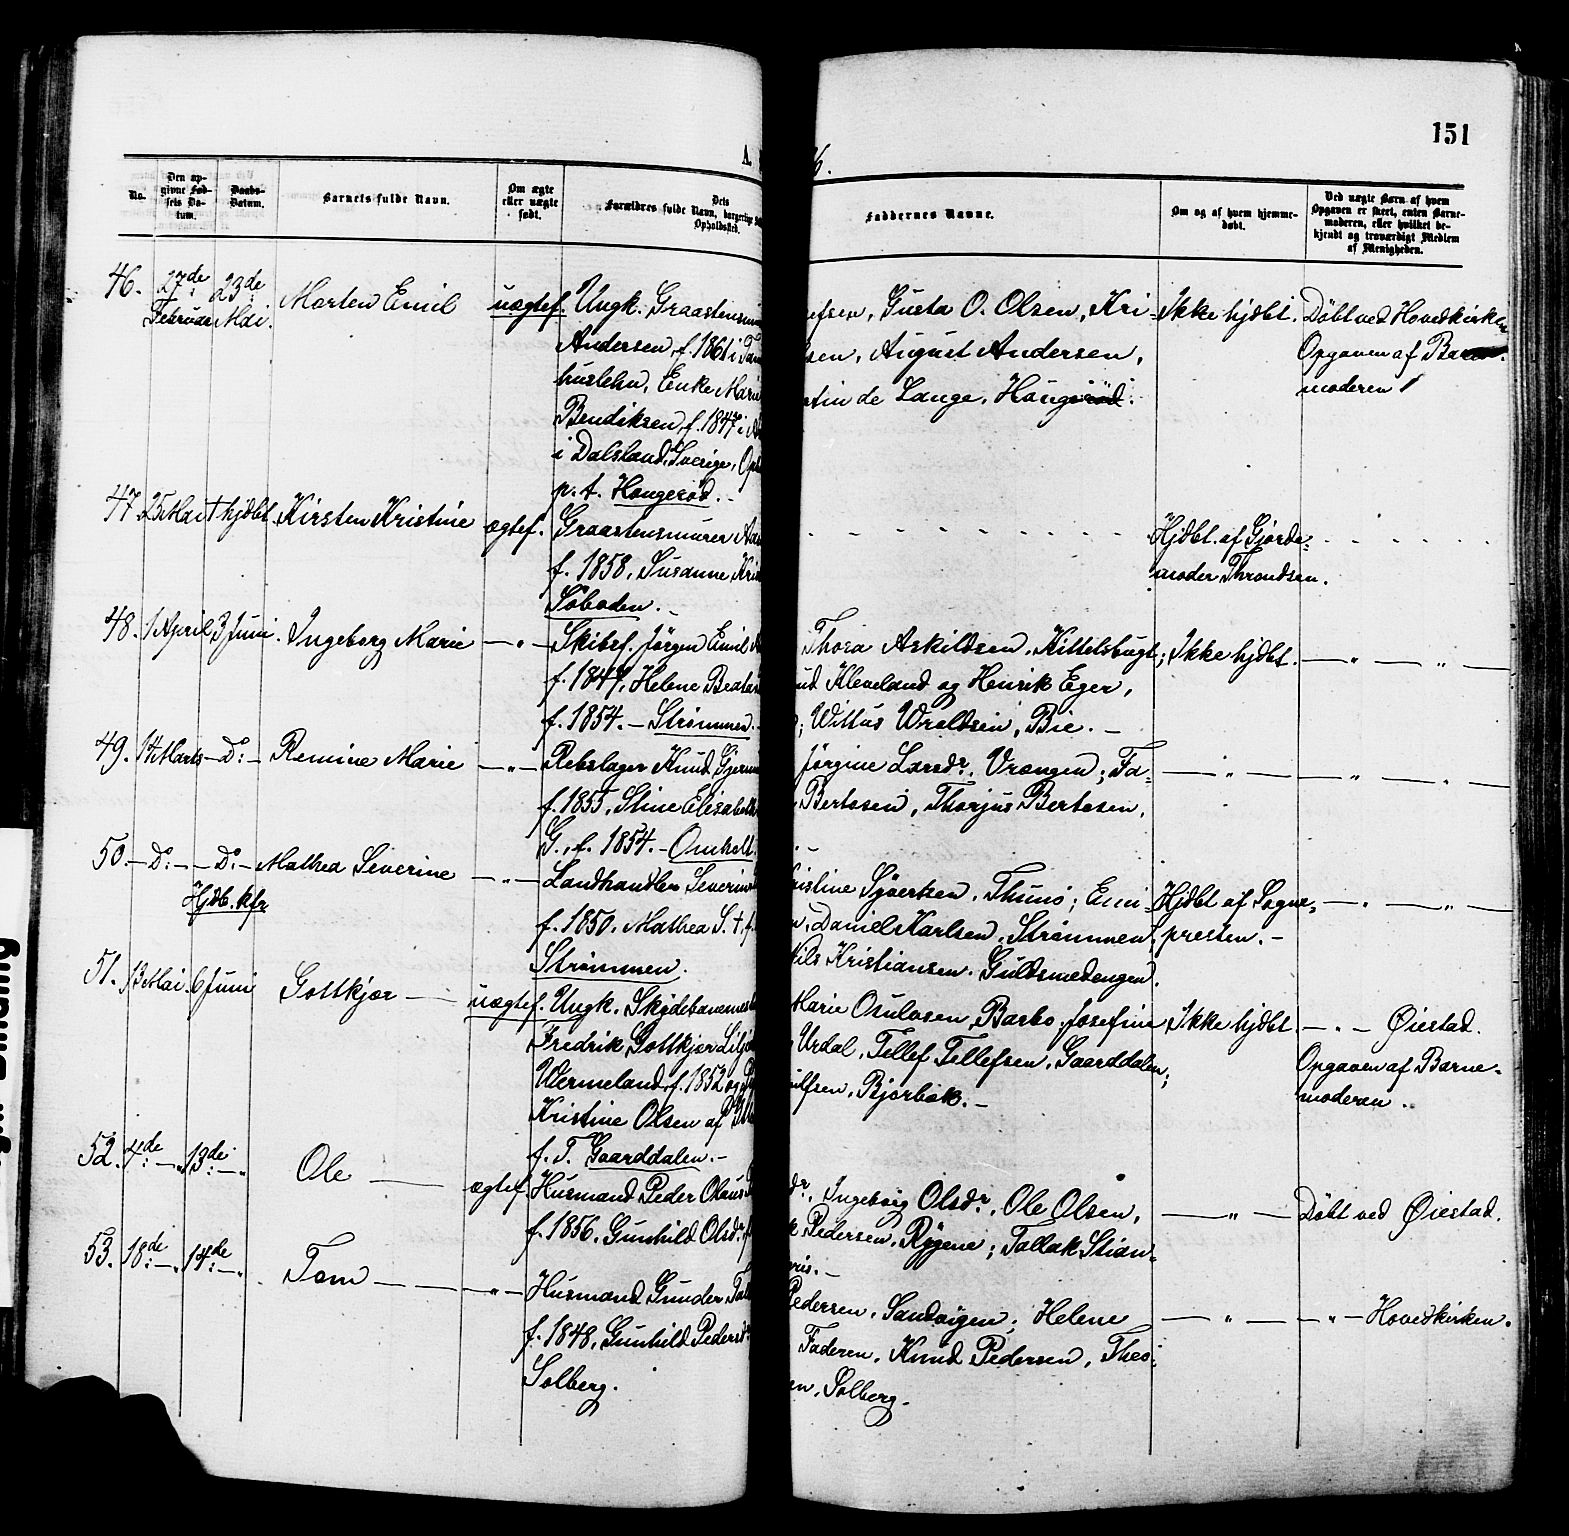 151
A.
6.
No.
Den op-
givne Fød-
sels Da-
tum.
Daabs-
Datum.
Barnets fulde Navn.
Om ægte
eller uægte
født.
Dets
Forældres fulde Navn, borgerlige
Opholdssted.
Faddernes Navne.
Om og af hvem hjemme-
døbt.
Ved uægte Barn af hvem
Opgaven er skeet, enten Barne-
moderen, eller hvilket be-
kjendt og troværdigt Medlem
af Menigheden.
46. 27de Februar 23de Mai. Morten Emil uægtef. Ungk. Graastensmu
Andersen, f. 1861 i
huslehn, Enke Marie
Bendiksen, f. 1847 i
i Dalsland, Sverige,
p. t. Hougerød. -
efsen, Gusta O. Olsen, Kri-
sen, August Andersen,
tin de Lange, Hougerød.
Ikke hjdbt.
Döbt ved Hovedkirken
Opgaven af Barne-
moderen
47. 25 Mai † hjdbt. Kirsten Kristine ægtef. Graastensmurer
f. 1858, Susanne
Söboden. -
Hjdbt. af Gjorde-
moder Throndsen.
48. 1 April 3 Juni. Ingeborg Marie — " — Skibsf. Jørgen Emil
f. 1847, Helene Beate
f. 1854. - Strømmen. -
Thora Askildsen, Kittelsbugt;
ud Kleveland og Henrik Eger,
; Wittus Wroldsen, Bie. -
Ikke hjdbt. — " — " —
49. 14 Marts — D: — Remine Marie — " — Rebslager Knud Gjerm
f. 1855, Stine Elisabeth
G., f. 1854. - Omholt.
Jørgine Larsdr, Vrængen; Fa-
Bertesen, Thorjus Bertesen,
— " — — " — " —
50. — D: — — D: — Mathea Severine — " — Landhandler Severin
Hjdb. kfr
f. 1850, Mathea S. †, f.
Strømmen.
ristine Syvertsen, Thunö; Emi-
n, Daniel Karlsen, Strømmen;
Nils Kristiansen, Guldsmedengen.
Hjdbt af Sogne-
presten. -
— " — " —
51. 13 Mai 6 Juni Gottkjær — uægtef. Ungk. Skydebanemest
Fredrik Gottkjær Lilj
Wermeland, f. 1852 og
Kristine Olsen af
f. T. Gaarddalen. -
Marie Osulvsen, Barbo, Josefine
Urdal, Tellef Tellefsen, Gaarddalen;
ulfsen, Bjorbæk. -
Ikke hjdbt. — " — Øiestad.
Opgaven af Barne-
moderen.
52. 4de — " 13de — " Ole — ægtef. Husmand Peder Olaus
f. 1856, Gunhild Olsdr
dr, Ingeborg Olsdr, Ole Olsen,
k Pedersen, Rygene; Tallak Stian-
ris. -
— " — Döbt ved Øiestad.
53. 18de — " 14de — " Tom — — " — Husmand Gunder
f. 1848, Gunhild Pedersdr
Solberg.
Pedersen, Sandvigen; Helene
Faderen, Knud Pedersen, Theo-
en, Solberg.
— " — — " — Hovedkirken.